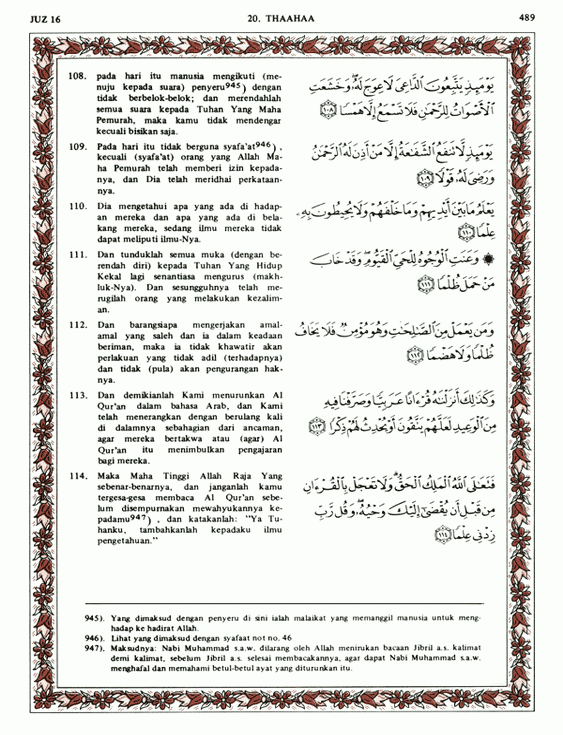 JUZ 16
20. THAAHAA
489
108. pada hari itu manusia mengikuti (me-
nuju kepada suara) penyeru945) dengan
tidak berbelok-belok; dan merendahlah
semua suara kepada Tuhan Yang Maha
Pemurah, maka kamu tidak mendengar
kecuali bisikan saja.
يَوْمَئِذٍ يَتَّبِعُونَ الدَّاعِيَ لَا عِوَجَ لَهُ ۖ وَخَشَعَتِ
الْأَصْوَاتُ لِلرَّحْمَٰنِ فَلَا تَسْمَعُ إِلَّا هَمْسًا ﴿١٠٨﴾
109. Pada hari itu tidak berguna syafa'at946) ,
kecuali (syafa'at) orang yang Allah Ma-
ha Pemurah telah memberi izin kepada-
nya, dan Dia telah meridhai perkataan-
nya.
يَوْمَئِذٍ لَّا تَنفَعُ الشَّفَٰعَةُ إِلَّا مَنْ أَذِنَ لَهُ الرَّحْمَٰنُ
وَرَضِيَ لَهُ قَوْلًا ﴿١٠٩﴾
110. Dia mengetahui apa yang ada di hadap-
an mereka dan apa yang ada di bela-
kang mereka, sedang ilmu mereka tidak
dapat meliputi ilmu-Nya.
يَعْلَمُ مَا بَيْنَ أَيْدِيهِمْ وَمَا خَلْفَهُمْ وَلَا يُحِيطُونَ بِهِ
عِلْمًا ﴿١١٠﴾
111. Dan tunduklah semua muka (dengan be-
rendah diri) kepada Tuhan Yang Hidup
Kekal lagi senantiasa mengurus (makh-
luk-Nya). Dan sesungguhnya telah me-
rugilah orang yang melakukan kezalim-
an.
۞ وَعَنَتِ الْوُجُوهُ لِلْحَيِّ الْقَيُّومِ ۖ وَقَدْ خَابَ
مَنْ حَمَلَ ظُلْمًا ﴿١١١﴾
112. Dan barangsiapa mengerjakan amal-
amal yang saleh dan ia dalam keadaan
beriman, maka ia tidak khawatir akan
perlakuan yang tidak adil (terhadapnya)
dan tidak (pula) akan pengurangan hak-
nya.
وَمَن يَعْمَلْ مِنَ الصَّٰلِحَٰتِ وَهُوَ مُؤْمِنٌ فَلَا يَخَافُ
ظُلْمًا وَلَا هَضْمًا ﴿١١٢﴾
113. Dan demikianlah Kami menurunkan Al
Qur'an dalam bahasa Arab, dan Kami
telah menerangkan dengan berulang kali
di dalamnya sebahagian dari ancaman,
agar mereka bertakwa atau (agar) Al
Qur'an itu menimbulkan pengajaran
bagi mereka.
وَكَذَٰلِكَ أَنزَلْنَٰهُ قُرْءَانًا عَرَبِيًّا وَصَرَّفْنَا فِيهِ
مِنَ الْوَعِيدِ لَعَلَّهُمْ يَتَّقُونَ أَوْ يُحْدِثُ لَهُمْ ذِكْرًا ﴿١١٣﴾
114. Maka Maha Tinggi Allah Raja Yang
sebenar-benarnya, dan janganlah kamu
tergesa-gesa membaca Al Qur'an sebe-
lum disempurnakan mewahyukannya ke-
padamu947) , dan katakanlah: "Ya Tu-
hanku, tambahkanlah kepadaku ilmu
pengetahuan."
فَتَعَٰلَى اللَّهُ الْمَلِكُ الْحَقُّ ۗ وَلَا تَعْجَلْ بِالْقُرْءَانِ
مِن قَبْلِ أَن يُقْضَىٰ إِلَيْكَ وَحْيُهُ ۖ وَقُل رَّبِّ
زِدْنِي عِلْمًا ﴿١١٤﴾
945). Yang dimaksud dengan penyeru di sini ialah malaikat yang memanggil manusia untuk meng-
hadap ke hadirat Allah.
946). Lihat yang dimaksud dengan syafaat not no. 46
947). Maksudnya: Nabi Muhammad s.a.w. dilarang oleh Allah menirukan bacaan Jibril a.s. kalimat
demi kalimat, sebelum Jibril a.s. selesai membacakannya, agar dapat Nabi Muhammad s.a.w.
menghafal dan memahami betul-betul ayat yang diturunkan itu.